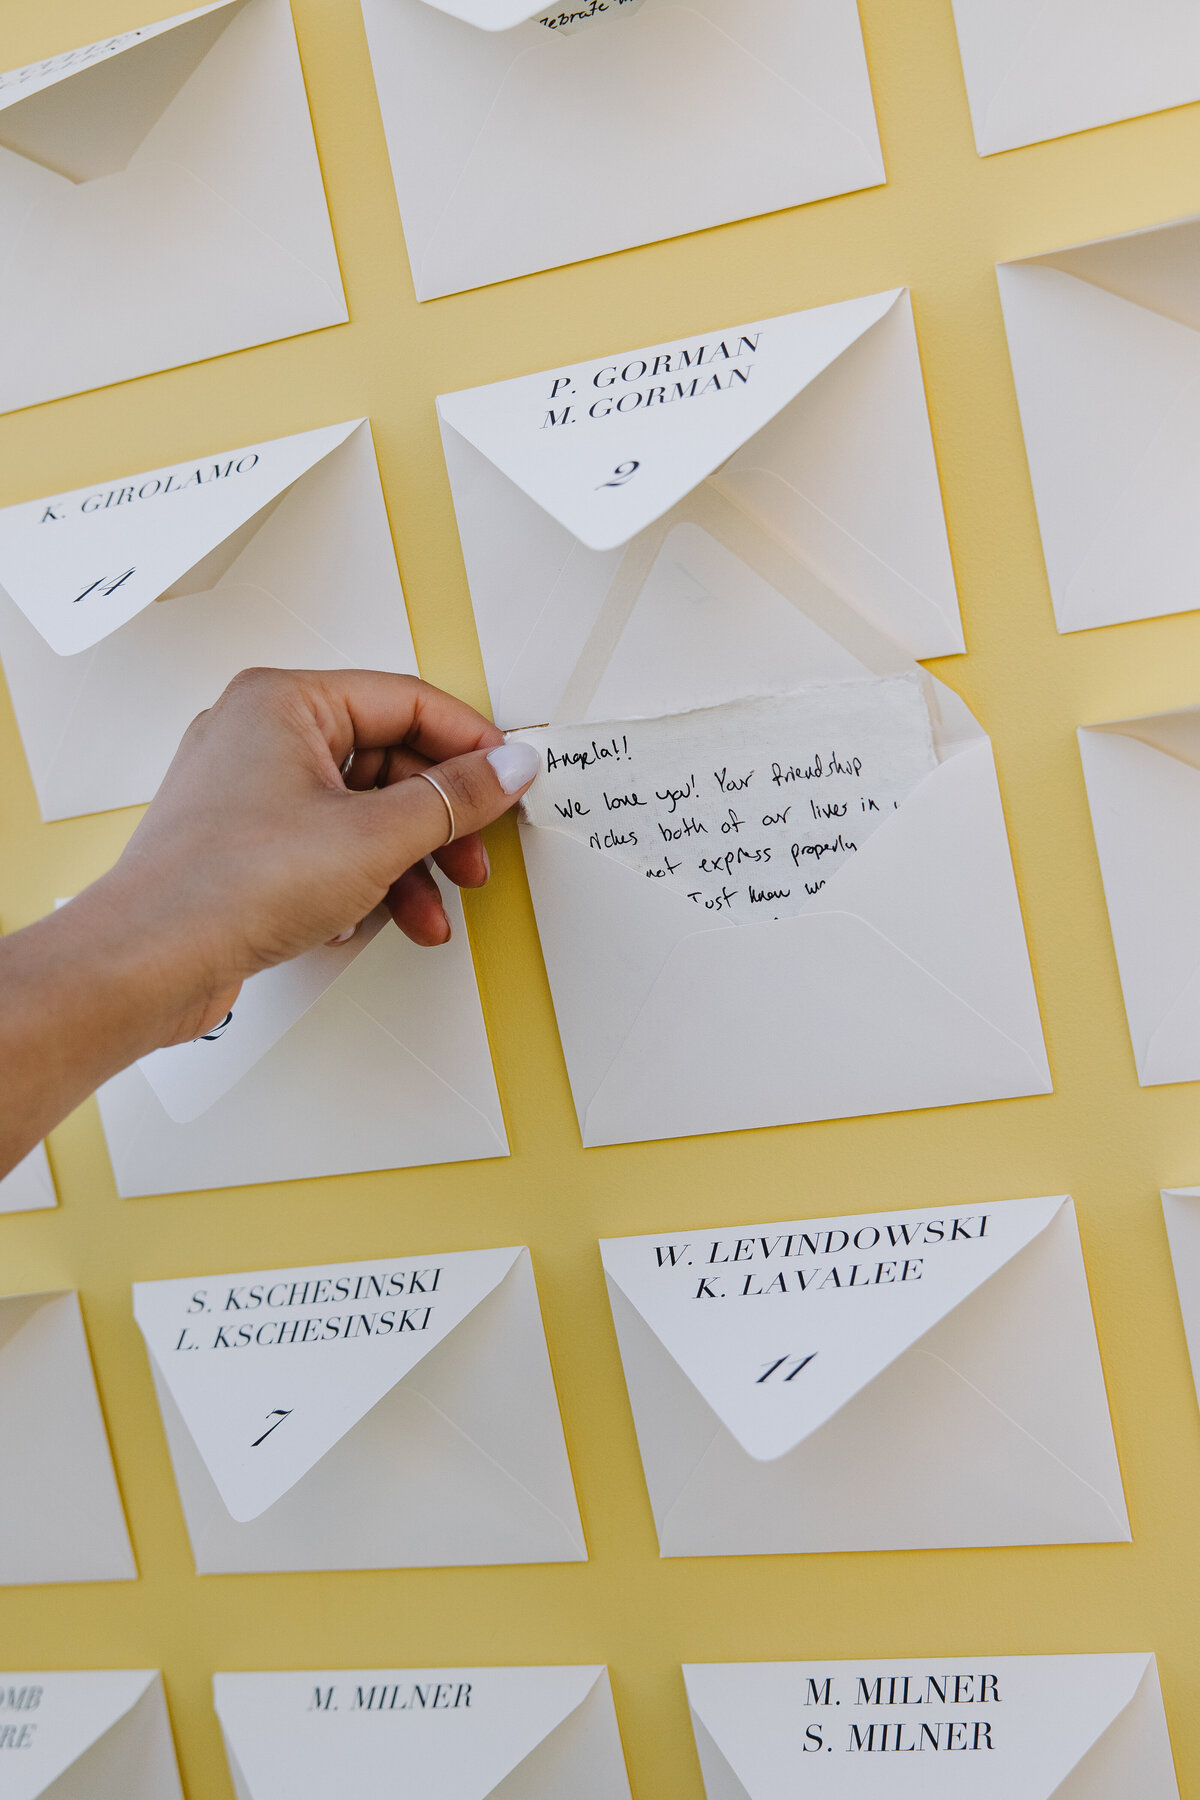 K. GIROLAMO
14
P. GORMAN
M. GORMAN
2
Angela!!
We love you! Your friendship
riches both of our lives in
not express properly
Just know
2
S. KSCHESINSKI
L. KSCHESINSKI
7
W. LEVINDOWSKI
K. LAVALEE
11
M. MILNER
M. MILNER
S. MILNER